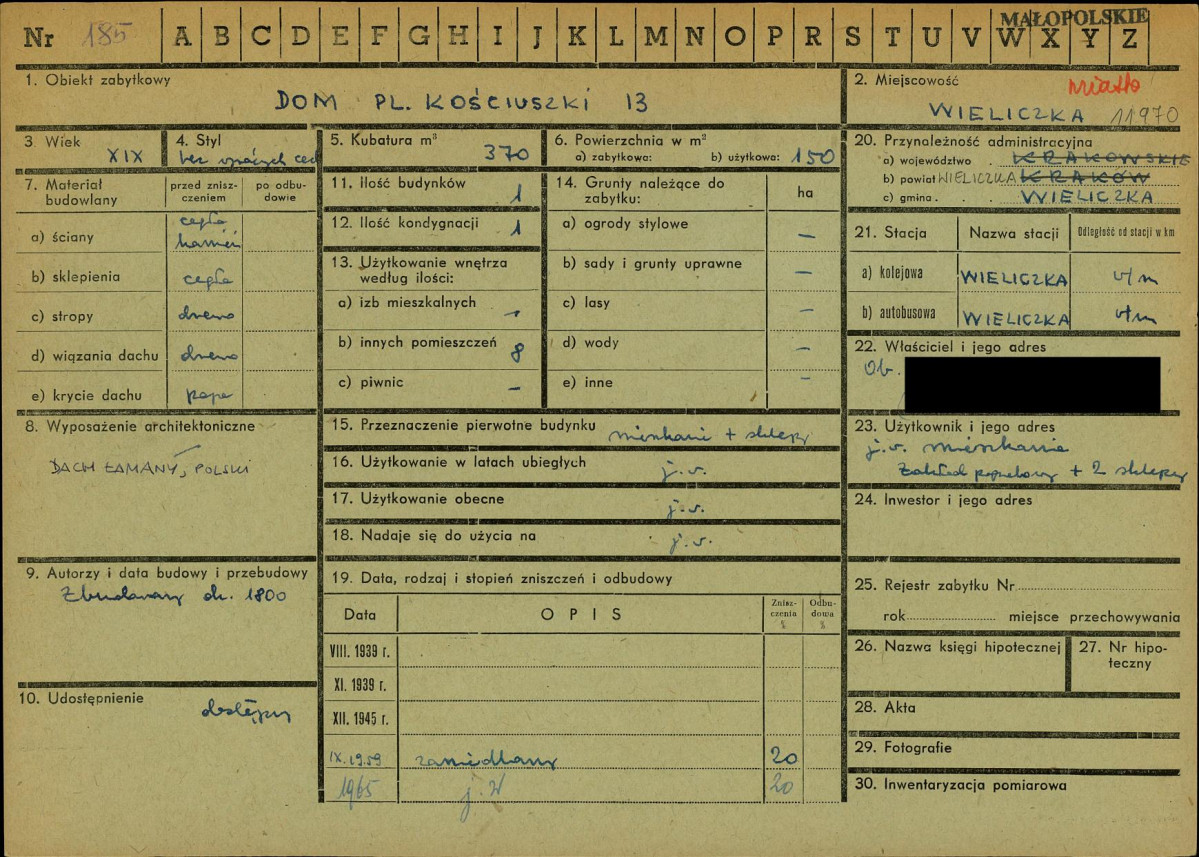 Nr 185 A B C D E F G H I J K L M N O P R S T U V W X Y Z
MAŁOPOLSKIE
1. Obiekt zabytkowy
DOM PL. KOŚCIUSZKI 13
2. Miejscowość
miasto
WIELICZKA 11970
3 Wiek
XIX
4. Styl
bez wyraźnych cech
5. Kubatura m³
370
6. Powierzchnia w m²
a) zabytkowa: b) użytkowa: 150
7. Materiał budowlany
przed zniszczeniem
po odbudowie
a) ściany
cegła
kamień
b) sklepienia cegła
c) stropy drewno
d) wiązania dachu drewno
e) krycie dachu papa
8. Wyposażenie architektoniczne
DACH ŁAMANY, POLSKI
9. Autorzy i data budowy i przebudowy
Zbudowany ok. 1800
10. Udostępnienie
dostępny
11. Ilość budynków 1
12. Ilość kondygnacji 1
13. Użytkowanie wnętrza
według ilości:
a) izb mieszkalnych -
b) innych pomieszczeń 8
c) piwnic -
14. Grunty należące do
zabytku:
ha
a) ogrody stylowe -
b) sady i grunty uprawne -
c) lasy -
d) wody -
e) inne -
15. Przeznaczenie pierwotne budynku mieszkanie + sklepy
16. Użytkowanie w latach ubiegłych j.w.
17. Użytkowanie obecne j.w.
18. Nadaje się do użycia na j.w.
19. Data, rodzaj i stopień zniszczeń i odbudowy
Data
OPIS
Zniszczenia %
Odbudowa %
VIII. 1939 r.
XI. 1939 r.
XII. 1945 r.
IX. 1959 zaniedbany 20
1965 j.w 20
20. Przynależność administracyjna
a) województwo . KRAKOWSKIE
b) powiat WIELICZKA KRAKÓW
c) gmina . . . WIELICZKA
21. Stacja
Nazwa stacji
Odległość od stacji w km
a) kolejowa WIELICZKA w/m
b) autobusowa WIELICZKA w/m
22. Właściciel i jego adres
Ob.
23. Użytkownik i jego adres
j.w. mieszkanie
Zakład pogrzebowy + 2 sklepy
24. Inwestor i jego adres
25. Rejestr zabytku Nr
rok miejsce przechowywania
26. Nazwa księgi hipotecznej
27. Nr hipoteczny
28. Akta
29. Fotografie
30. Inwentaryzacja pomiarowa